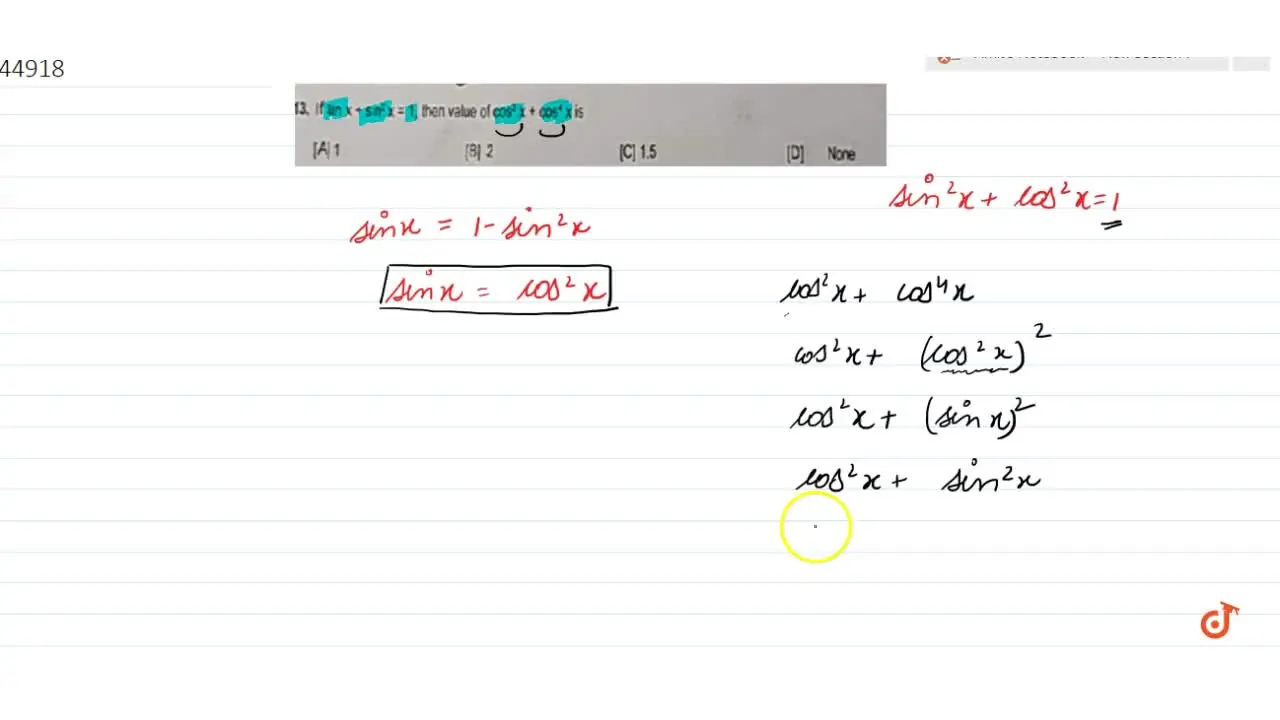 44918
13. If sin x + sin² x = 1, then value of cos² x + cos⁴ x is
[A] 1 [B] 2 [C] 1.5 [D] None
sin²x + cos²x = 1
sinx = 1 - sin²x
sinx = cos²x
cos²x + cos⁴x
cos²x + (cos²x)²
cos²x + (sin x)²
cos²x + sin²x